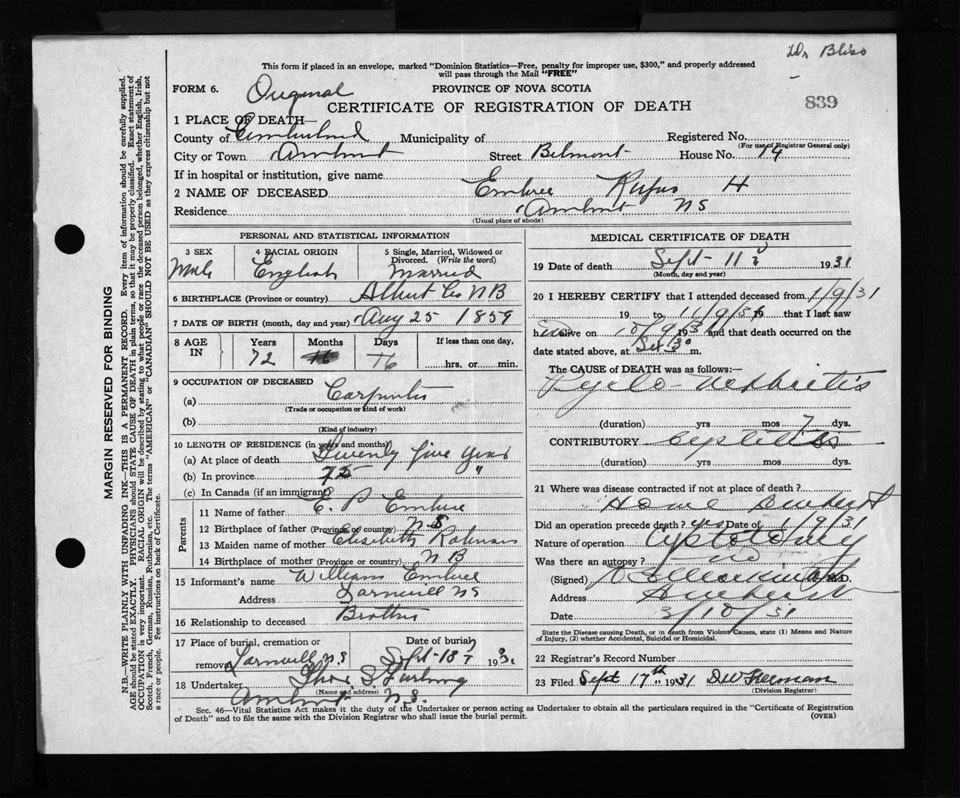 Dr Bliss
This form if placed in an envelope, marked "Dominion Statistics—Free, penalty for improper use, $300," and properly addressed
will pass through the Mail "FREE"
FORM 6. Original PROVINCE OF NOVA SCOTIA
CERTIFICATE OF REGISTRATION OF DEATH 839
1 PLACE OF DEATH—
County of Cumberland Municipality of Registered No.
(For use of Registrar General only)
City or Town Amherst Street Belmont House No. 14
If in hospital or institution, give name
2 NAME OF DECEASED Embree Rufus H
Residence Amherst NS
(Usual place of abode)
PERSONAL AND STATISTICAL INFORMATION
3 SEX 4 RACIAL ORIGIN 5 Single, Married, Widowed or
Divorced. (Write the word)
Male English Married
6 BIRTHPLACE (Province or country) Albert Co NB
7 DATE OF BIRTH (month, day and year) Aug 25 1859
8 AGE IN Years Months Days If less than one day,
72 16 16 hrs. or min.
9 OCCUPATION OF DECEASED
(a) Carpenter
(Trade or occupation or kind of work)
(b)
(Kind of industry)
10 LENGTH OF RESIDENCE (in years and months)
(a) At place of death Twenty five years
(b) In province 75 "
(c) In Canada (if an immigrant)
Parents
11 Name of father E. P Embree
12 Birthplace of father (Province or country) N S
13 Maiden name of mother Elisabeth
14 Birthplace of mother (Province or country) N B
15 Informant's name William Embree
Address NS
16 Relationship to deceased Brother
17 Place of burial, cremation or Date of burial
removal N S Sept 13 1931
18 Undertaker Thos S Furlong
(Name and address)
Amherst N.S.
MEDICAL CERTIFICATE OF DEATH
19 Date of death Sept 11 1931
(Month, day and year)
20 I HEREBY CERTIFY that I attended deceased from 1/9/31
19 to 11/9/31 19 that I last saw
h alive on 10/9/31 and that death occurred on
the date stated above, at m.
The CAUSE of DEATH was as follows:—
Pyelo-nephritis
(duration) yrs mos 7 dys.
CONTRIBUTORY Cystitis
(duration) yrs mos dys.
21 Where was disease contracted if not at place of death?
Home Amherst
Did an operation precede death? yes Date of 1/9/31
Nature of operation Cystotomy
Was there an autopsy? no
(Signed) M.D.
Address Amherst
Date 3/10/31
State the Disease causing Death, or in death from Violent Causes, state (1) Means and Nature
of Injury, (2) whether Accidental, Suicidal or Homicidal.
22 Registrar's Record Number
23 Filed Sept 17th 1931 DW Freeman
(Division Registrar)
Sec. 46—Vital Statistics Act makes it the duty of the Undertaker or person acting as Undertaker to obtain all the particulars required in the "Certificate of Registration
of Death" and to file the same with the Division Registrar who shall issue the burial permit. (OVER)
MARGIN RESERVED FOR BINDING
N.B.—WRITE PLAINLY WITH UNFADING INK—THIS IS A PERMANENT RECORD. Every item of information should be carefully supplied.
AGE should be stated EXACTLY. PHYSICIANS should STATE CAUSE OF DEATH in plain terms, so that it may be properly classified. Exact statement of
OCCUPATION is very important. RACIAL ORIGIN will be described by stating to what people or race the deceased person belonged, whether English, Irish,
Scotch, French, German, Russian, Ruthenian, etc. The terms "AMERICAN" or "CANADIAN" SHOULD NOT BE USED as they express citizenship but not
a race or people. See instructions on back of Certificate.